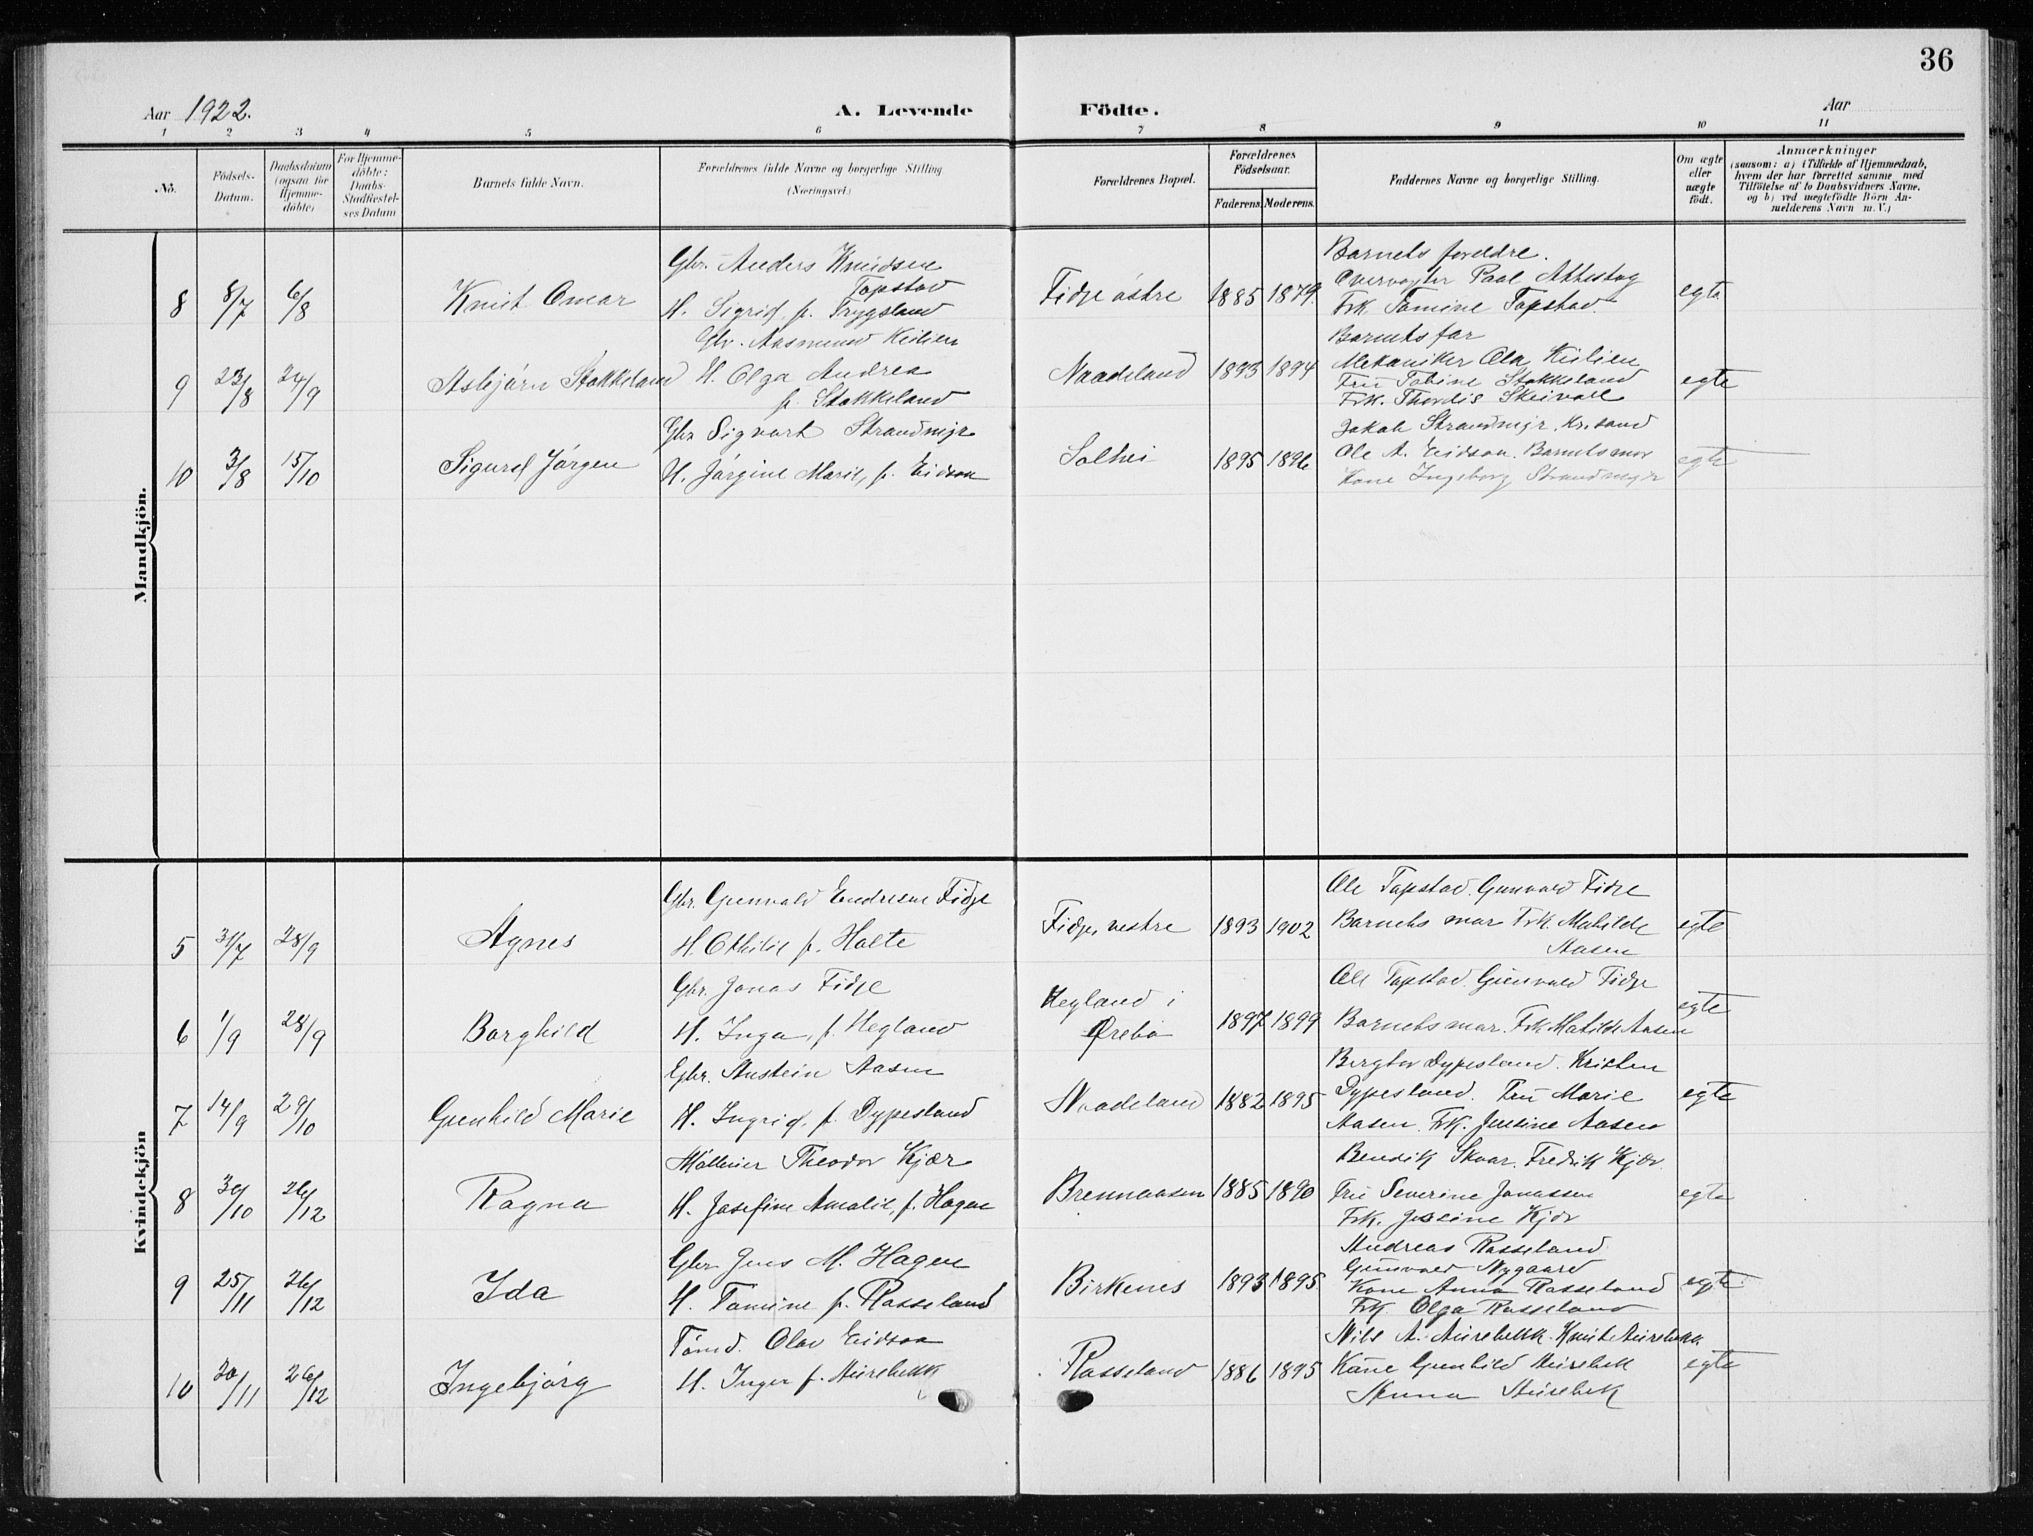 36
Aar 1922.
A. Levende Födte.
Aar
1 2 3 4 5 6 7 8 9 10 11
No.
Födsels-Datum.
Daabsdatum (ogsaa for Hjemme-döbte)
For Hjemme-döbte: Daabs-Stadfæstel-ses Datum
Barnets fulde Navn.
Forældrenes fulde Navne og borgerlige Stilling (Næringsvei.)
Forældrenes Bopæl.
Forældrenes Födselsaar.
Faderens. Moderens.
Faddernes Navne og borgerlige Stilling.
Om ægte eller uægte födt.
Anmærkninger
(saasom: a) i Tilfælde af Hjemmedaab,
hvem der har forrettet samme med
Tilföielse af to Daabsvidners Navne,
og b) ved uægtefödte Börn An-
melderens Navn m. V.)
Mandkjön.
8 8/7 6/8 Knut Omar
Gbr. Anders Knudsen
Tapstad
H. Sigrid, f. Trygsland
Fidje östre 1885 1879.
Barnets foreldre.
Opervagter Paal
Frk. Tomine Tapstad
egte
9 23/8 24/9 Asbjörn Stokkeland
Gbr. Aasmund Keilien
H. Olga Andrea
f. Stokkeland
Naadeland 1893 1894
Barnets far
Mekaniker Ola Keilien
Fru Tobine Stokkeland
Frk. Thordis Skeivoll
egte
10 3/8 15/10 Sigurd Jörgen
Gbr Sigvart Strandmyr
H. Jörgine Marie, f. Eidsaa
Solhei 1895 1896
Jakob Strandmyr. Kr.sand
Ole A. Eidsaa. Barnets mor
Kone Ingeborg Strandmyr
egte
Kvindekjön
5 31/7 28/9 Agnes
Gbr. Gunvald Endresen Fidje
H. Othilie f. Holte
Fidje, vestre 1893 1902
Ole Tapstad. Gunvald Fidje
Barnets mor Frk. Mathilde
Aasen
egte
6 1/9 28/9 Borghild
Gbr. Jonas Fidje
H. Inga, f. Hegland
Hegland i
Örebö
1897 1899
Ole Tapstad. Gunvald Fidje
Barnets mor. Frk. Matilde Aasen
egte
7 14/9 29/10 Gunhild Marie
Gbr. Austein Aasen
H. Ingrid, f. Dypesland
Naadeland 1882 1895
Bergtor Dypesland. Kristen
Dypesland. Fru Marie
Aasen. Frk. Justine Aasen
egte
8 30/10 26/12 Ragna
Möllerier Theodor Kjær
H. Josefine Amalie, f. Hagen
Brennaasen 1885 1890
Bendik Skaar. Fredrik Kjær.
Fru Severine Jonassen
Frk. Josine Kjær
egte
9 25/11 26/12 Ida
Gbr Jens M. Hagen
H. Tomine f. Rosseland
Birkenes 1893 1895.
Andreas Rosseland
Gunvald Nygaard
Kone Anna Rosseland
Frk. Olga Rosseland
egte
10 20/11 26/12 Ingebjörg
Tömd. Olav Eidsaa
H. Inger f. Aurebekk
Rosseland 1886 1895
Nils A. Aurebekk. Knut Aurebekk
Kone Gunhild Aurebek
Anna Aurebek
egte